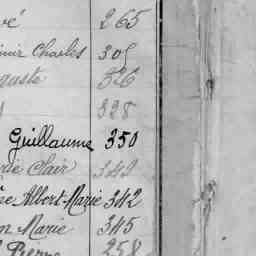 vé 265
Charles 305
guste 326
328
Guillaume 350
Clair 349
Albert-Marie 342
n Marie 345
Pierre 258